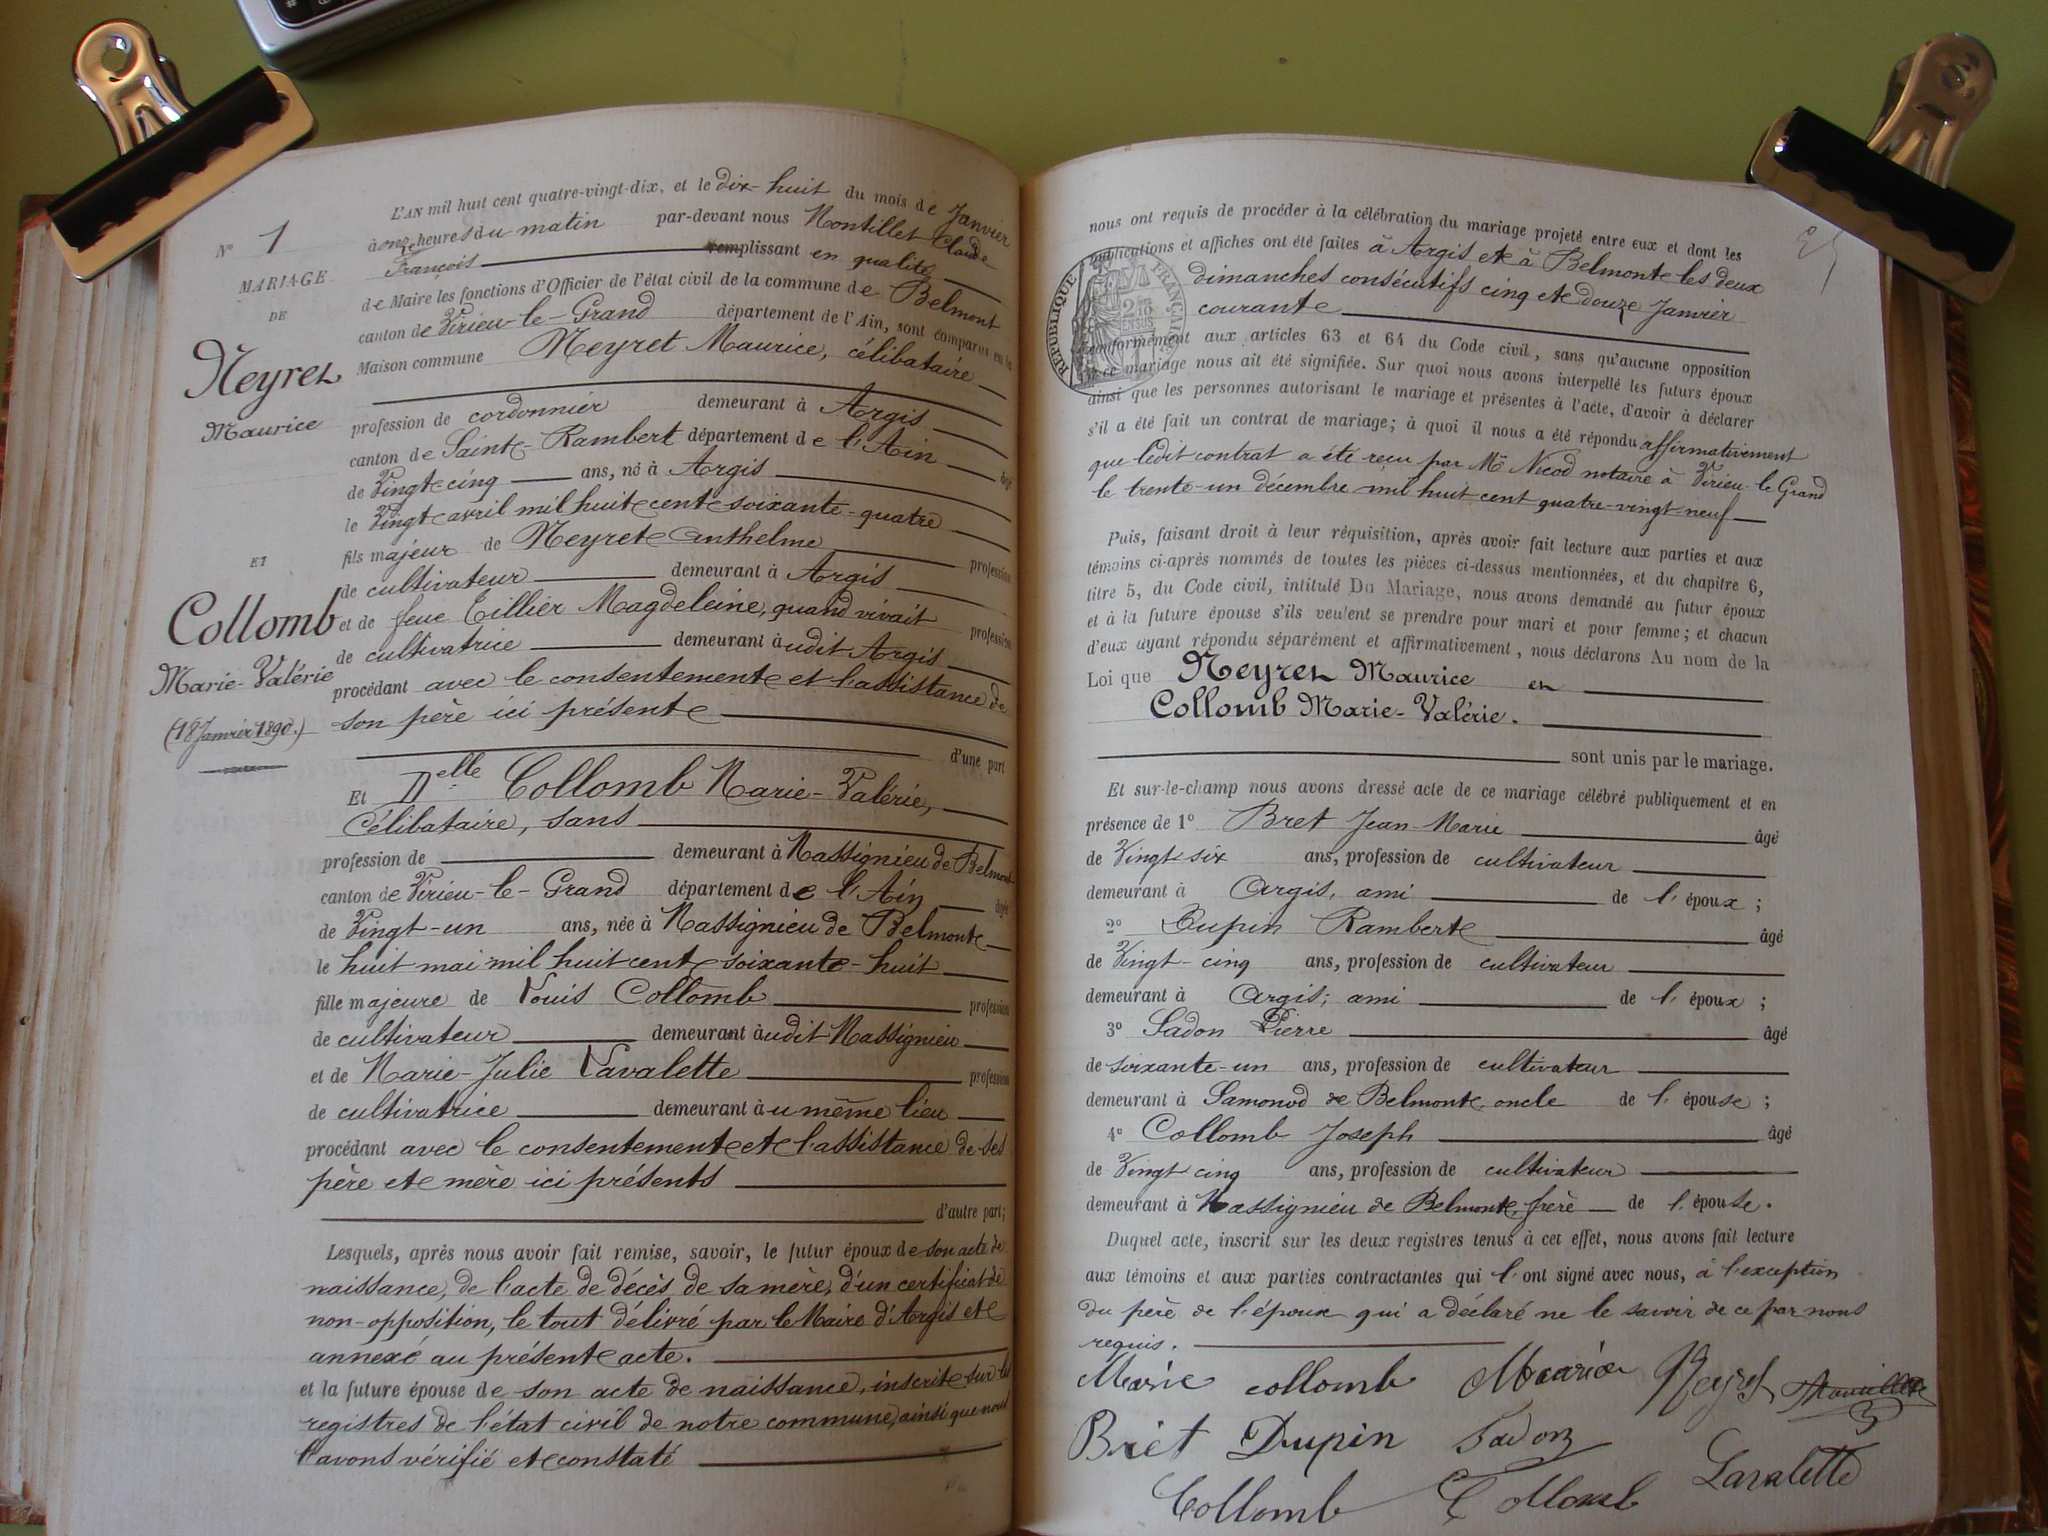 N° 1
MARIAGE
DE
Neyret
Maurice
ET
Collomb
Marie-Valérie
(18 Janvier 1890.)
L'AN mil huit cent quatre-vingt-dix, et le dix-huit du mois de Janvier
à onze heures du matin par-devant nous Montillet Claude
François remplissant en qualité
de Maire les fonctions d'Officier de l'état civil de la commune de Belmont
canton de Virieu-le-Grand département de l'Ain, sont comparus en la
Maison commune Neyret Maurice, célibataire
profession de cordonnier demeurant à Argis
canton de Saint-Rambert département de l'Ain âgé
de Vingt-cinq ans, né à Argis
le Vingt avril mil huit cent soixante-quatre
fils majeur de Neyret Anthelme profession
de cultivateur demeurant à Argis
et de feue Tillier Magdeleine, quand vivait profession
de cultivatrice demeurant audit Argis
procédant avec le consentement et l'assistance de
son père ici présent
d'une part
Et Delle Collomb Marie-Valérie,
Célibataire, sans
profession de demeurant à Massignieu de Belmont
canton de Virieu-le-Grand département de l'Ain âgé
de Vingt-un ans, née à Massignieu de Belmont
le huit mai mil huit cent soixante-huit
fille majeure de Louis Collomb profession
de cultivateur demeurant audit Massignieu
et de Marie-Julie Lavalette profession
de cultivatrice demeurant au même lieu
procédant avec le consentement et l'assistance de ses
père et mère ici présents
d'autre part;
Lesquels, après nous avoir fait remise, savoir, le futur époux de son acte de
naissance, de l'acte de décès de sa mère, d'un certificat de
non-opposition, le tout délivré par le Maire d'Argis et
annexé au présent acte.
et la future épouse de son acte de naissance, inscrit sur les
registres de l'état civil de notre commune, ainsi que nous
l'avons vérifié et constaté
nous ont requis de procéder à la célébration du mariage projeté entre eux et dont les
publications et affiches ont été faites à Argis et à Belmont les deux
dimanches consécutifs cinq et douze Janvier
courant
RÉPUBLIQUE FRANÇAISE
conformément aux articles 63 et 64 du Code civil, sans qu'aucune opposition
à ce mariage nous ait été signifiée. Sur quoi nous avons interpellé les futurs époux
ainsi que les personnes autorisant le mariage et présentes à l'acte, d'avoir à déclarer
s'il a été fait un contrat de mariage; à quoi il nous a été répondu affirmativement
que ledit contrat a été reçu par Me Nicod notaire à Virieu-le-Grand
le trente-un décembre mil huit cent quatre-vingt-neuf
Puis, faisant droit à leur réquisition, après avoir fait lecture aux parties et aux
témoins ci-après nommés de toutes les pièces ci-dessus mentionnées, et du chapitre 6,
titre 5, du Code civil, intitulé Du Mariage, nous avons demandé au futur époux
et à la future épouse s'ils veulent se prendre pour mari et pour femme; et chacun
d'eux ayant répondu séparément et affirmativement, nous déclarons Au nom de la
Loi que Neyret Maurice et
Collomb Marie-Valérie.
sont unis par le mariage.
Et sur-le-champ nous avons dressé acte de ce mariage célébré publiquement et en
présence de 1° Bret Jean-Marie âgé
de Vingt-six ans, profession de cultivateur
demeurant à Argis, ami de l'époux;
2° Dupin Rambert âgé
de Vingt-cinq ans, profession de cultivateur
demeurant à Argis; ami de l'époux;
3° Sadon Pierre âgé
de soixante-un ans, profession de cultivateur
demeurant à Samonod de Belmont, oncle de l'épouse;
4° Collomb Joseph âgé
de Vingt cinq ans, profession de cultivateur
demeurant à Massignieu de Belmont, frère de l'épouse.
Duquel acte, inscrit sur les deux registres tenus à cet effet, nous avons fait lecture
aux témoins et aux parties contractantes qui l'ont signé avec nous, à l'exception
du père de l'époux qui a déclaré ne le savoir de ce par nous
requis.
Marie collomb Maurice Neyret
Bret Dupin Sadon
Collomb Collomb Lavalette